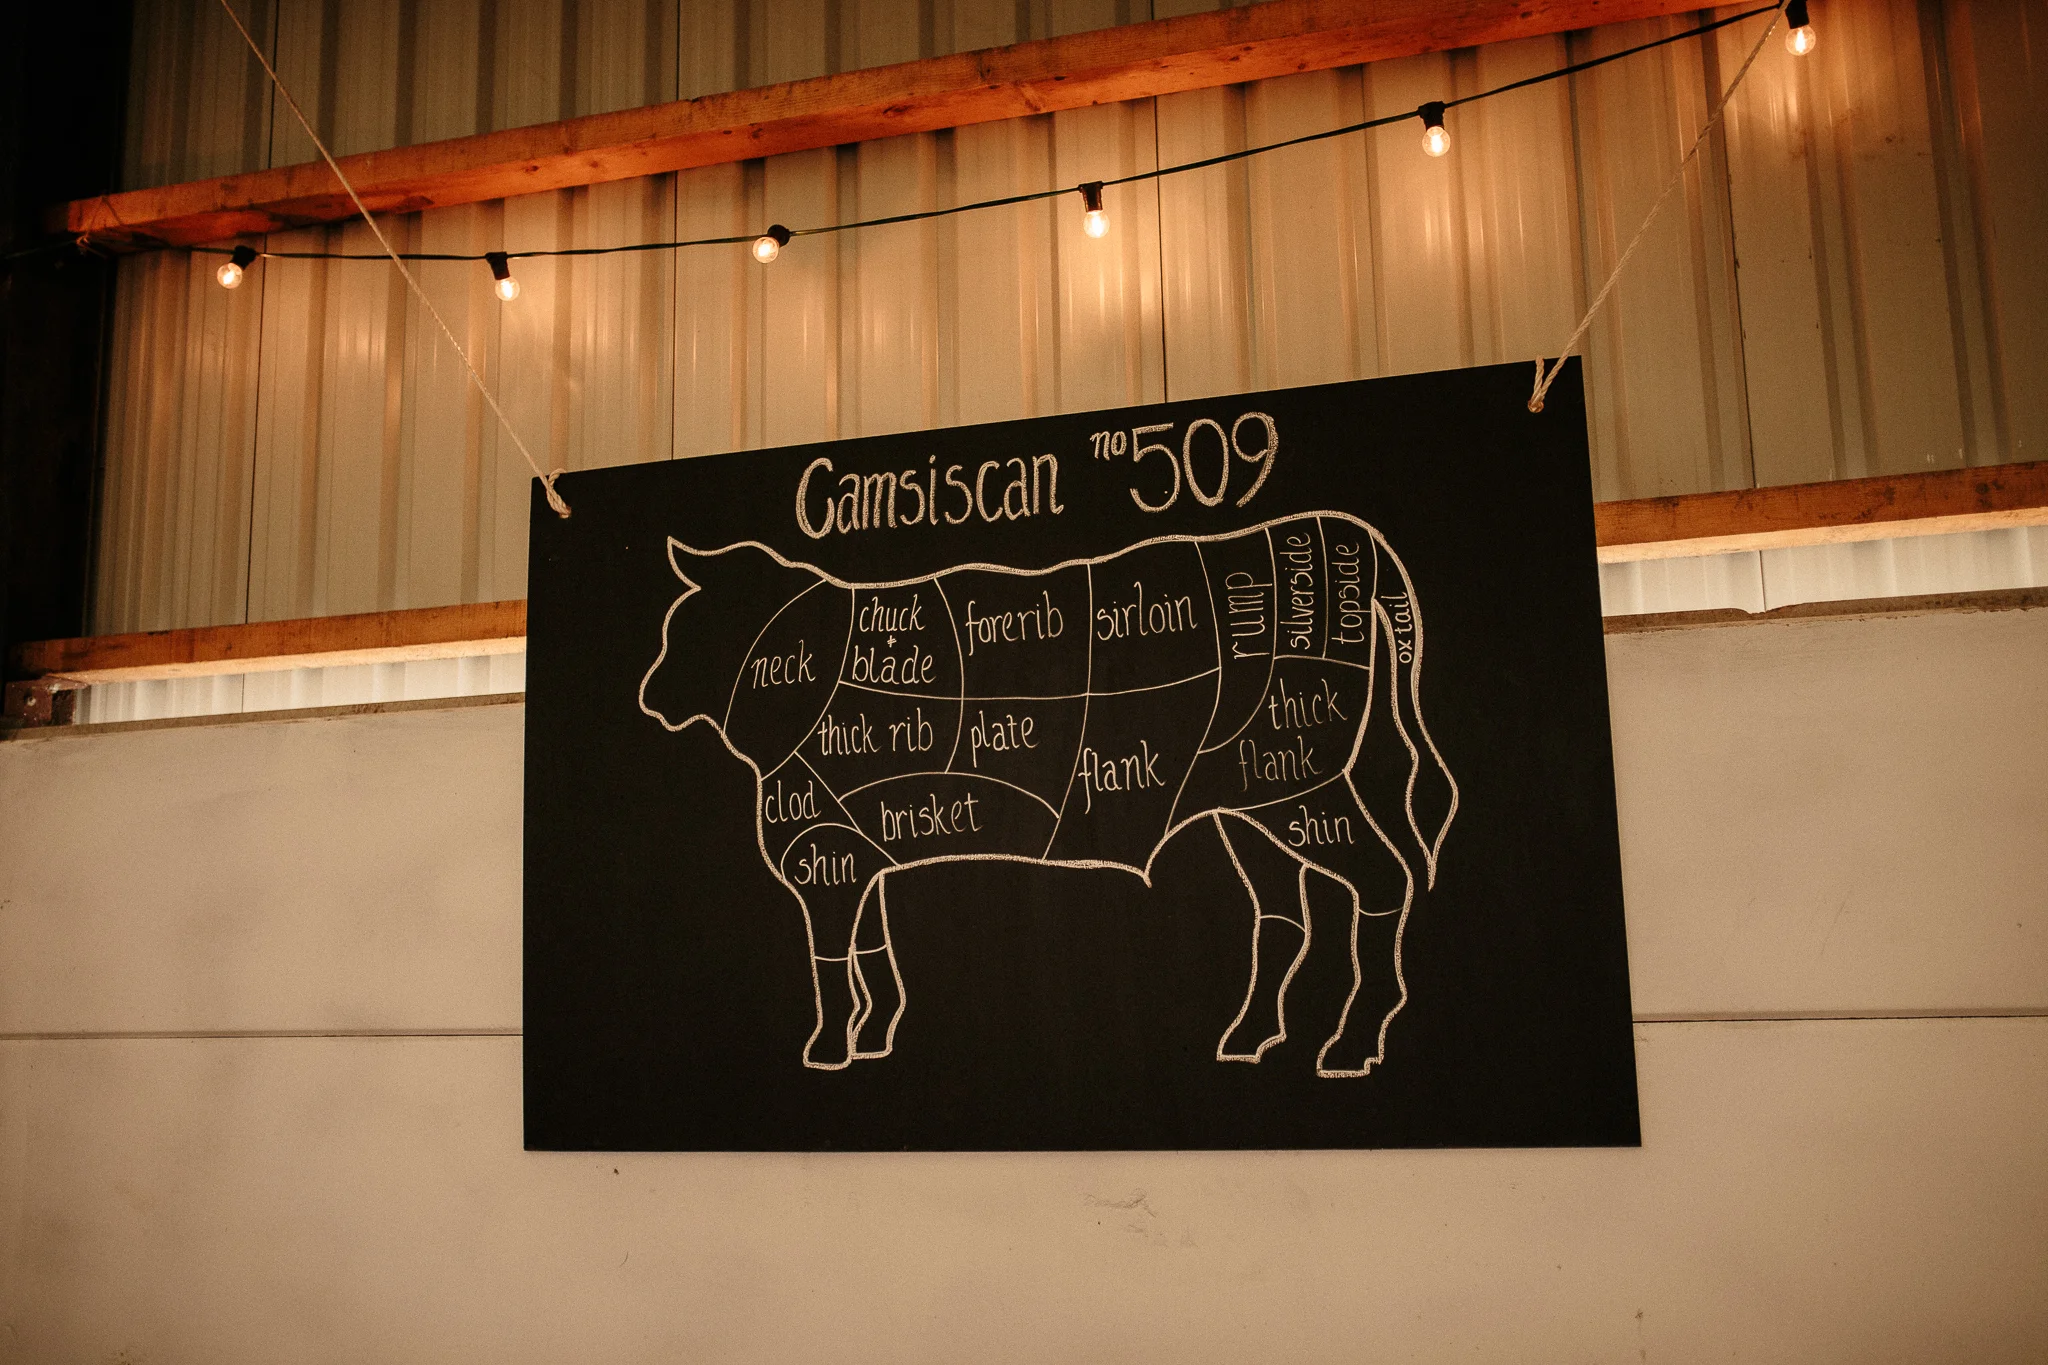 Camsiscan no 509
neck
chuck
&
blade
forerib
sirloin
rump
silverside
topside
ox tail
thick rib
plate
flank
thick
flank
clod
brisket
shin
shin